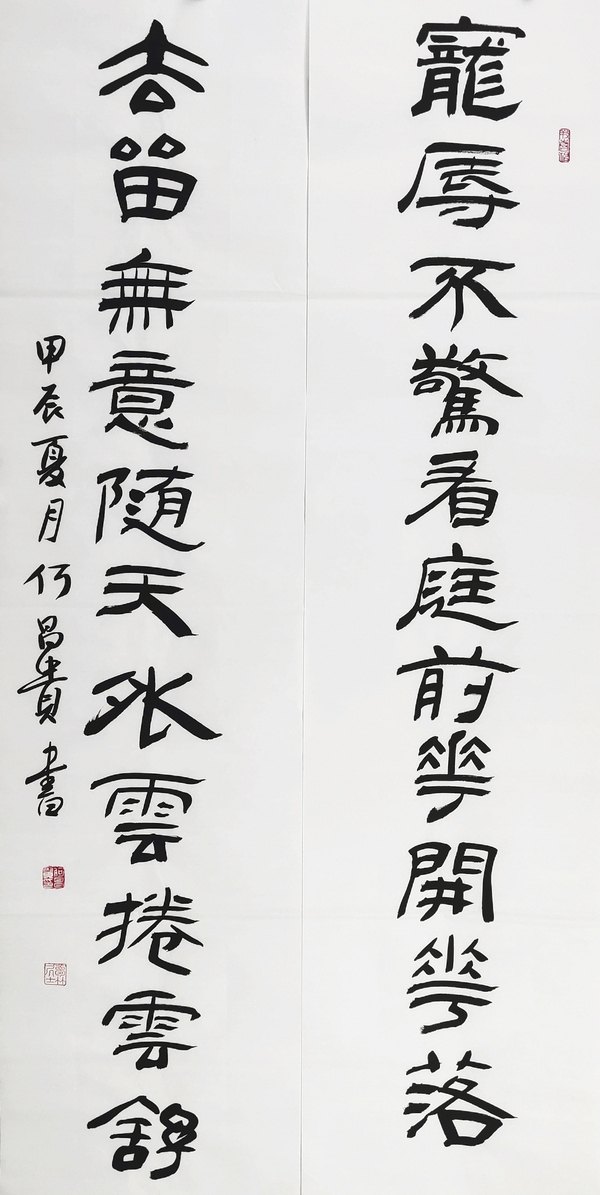 寵辱不驚看庭前花開花落
去留無意隨天外雲捲雲舒
甲辰夏月何昌貴書